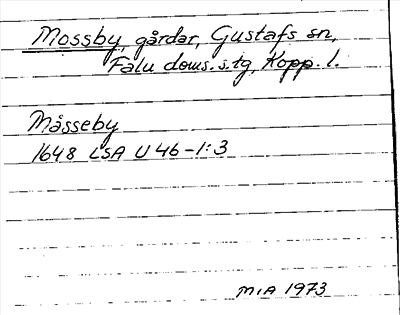 Mossby, gårdar, Gustafs sn,
Falu doms. s. tg, Kopp. l.
Måsseby
1648 LSA U 46-1:3
MiA 1973